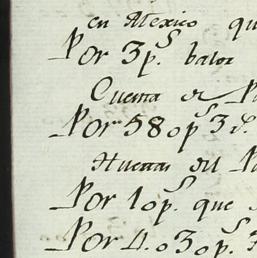 en Mexico qu
Por 3 p.s balor
Cuenta de P
Por 580 p.s 3 r.
Huertas del P
Por 10 p.s que
Por 4.030 p.s 3